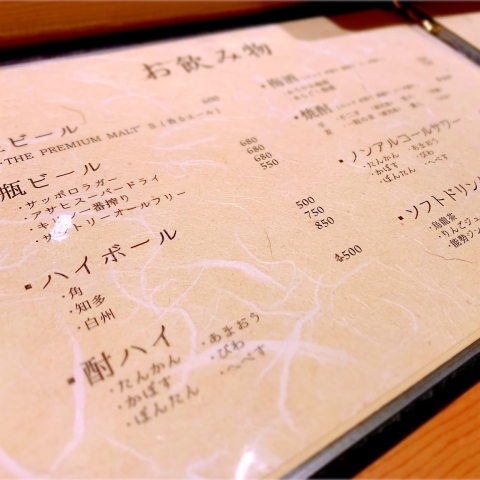 お飲み物
生ビール
・THE PREMIUM MALT'S（香るエール） 600
・瓶ビール
・サッポロラガー 680
・アサヒスーパードライ 680
・キリン一番搾り 680
・サントリーオールフリー 550
・ハイボール
・角 500
・知多 750
・白州 850
・酎ハイ 各500
・たんかん ・あまおう
・かぼす ・びわ
・ぽんたん ・へべす
・梅酒
・焼酎
・ノンアルコールサワー
・たんかん ・あまおう
・かぼす ・びわ
・ぽんたん ・へべす
・ソフトドリン
・烏龍茶
・りんごジュ
・能勢ジン